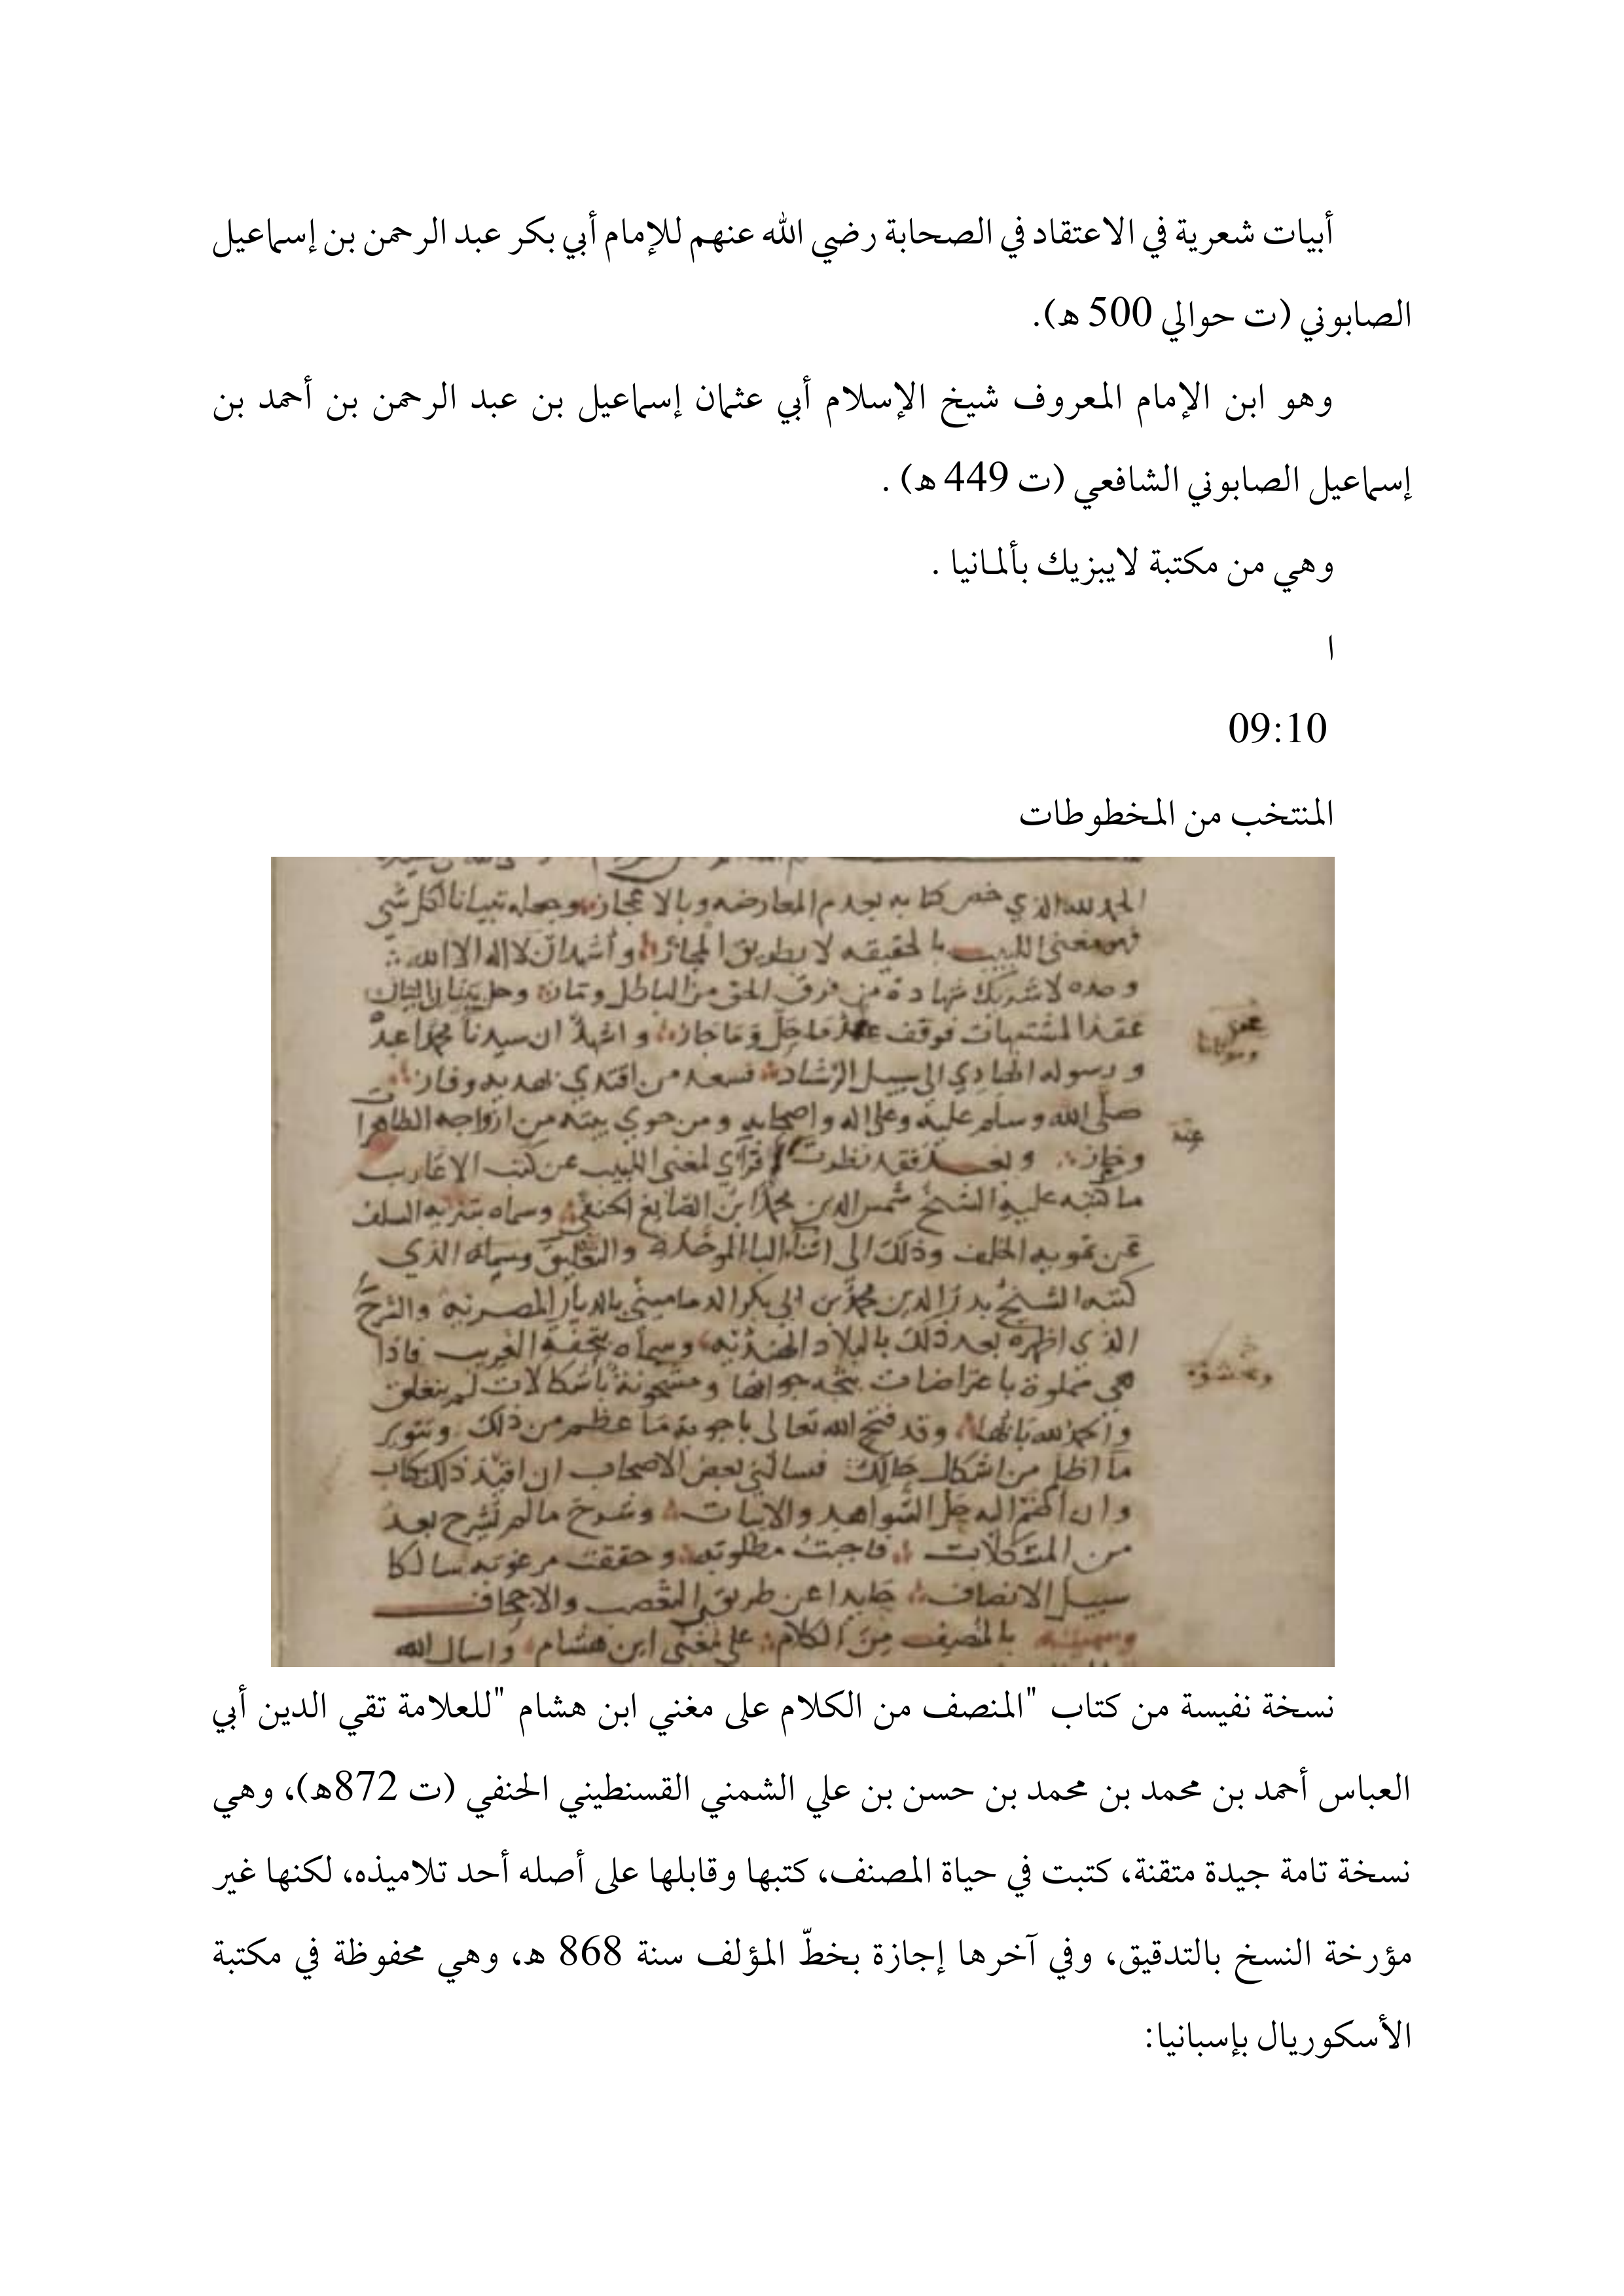 أبيات شعرية في الاعتقاد في الصحابة رضي الله عنهم للإمام أبي بكر عبد الرحمن بن إسماعيل
الصابوني (ت حوالي 500 ه).
وهو ابن الإمام المعروف شيخ الإسلام أبي عثمان إسماعيل بن عبد الرحمن بن أحمد بن
إسماعيل الصابوني الشافعي (ت 449 ه) .
وهي من مكتبة لايبزيك بألمانيا .
ا
09:10
المنتخب من المخطوطات
الحمد لله الذي خص كتابه بعدم المعارضه وبالاعجاز وجعله تبيانا لكل شي
فهو مغني اللبيب بالحقيقه لا بطريق المجاز واشهد ان لا اله الا الله
وحده لا شريك له شهادة من فرق الحق من الباطل وماز وحل
عقد المشتبهات فوقف عند ما حل وما جاز واشهد ان سيدنا محمدا عبده
ورسوله الهادي الى سبيل الرشاد فسعد من اقتدى بهديه وفاز
صلى الله وسلم عليه وعلى اله واصحابه ومن حوى بيته من ازواجه الطاهرات
وحاز وبعد فقد نظرت لمغني اللبيب عن كتب الاعاريب
ما كتبه عليه الشيخ شمس الدين محمد ابن الصايغ الحنفي وسماه بتنزيه السلف
عن تمويه الخلف وذلك الى اثناء البا الموحدة والتعليق وسماه الذي
كتبه الشيخ بدر الدين محمد بن ابي بكر الدماميني بالديار المصرية والشرح
الذي اظهره بعد ذلك بالبلاد الهندية وسماه بتحفة الغريب فاذا
هي مملوة باعتراضات يتجه جوابها ومشحونة باشكالات لم ينغلق
والحمد لله بابها وقد فتح الله تعالى باجوبة ما عظم من ذلك وتنوير
ما اظلم من اشكال حالك فسالني بعض الاصحاب ان اقيد ذلك بكتاب
وان اضم اليه حل الشواهد والابيات وشرح ما لم يشرح بعد
من المشكلات فاجبت مطلوبه وحققت مرغوبه سالكا
سبيل الانصاف حايدا عن طريقي التعصب والاجحاف
وسميته بالمنصف من الكلام على مغني ابن هشام واسال الله
نسخة نفيسة من كتاب "المنصف من الكلام على مغني ابن هشام "للعلامة تقي الدين أبي
العباس أحمد بن محمد بن محمد بن حسن بن علي الشمني القسنطيني الحنفي (ت 872ه)، وهي
نسخة تامة جيدة متقنة، كتبت في حياة المصنف، كتبها وقابلها على أصله أحد تلاميذه، لكنها غير
مؤرخة النسخ بالتدقيق، وفي آخرها إجازة بخطّ المؤلف سنة 868 ه، وهي محفوظة في مكتبة
الأسكوريال بإسبانيا: